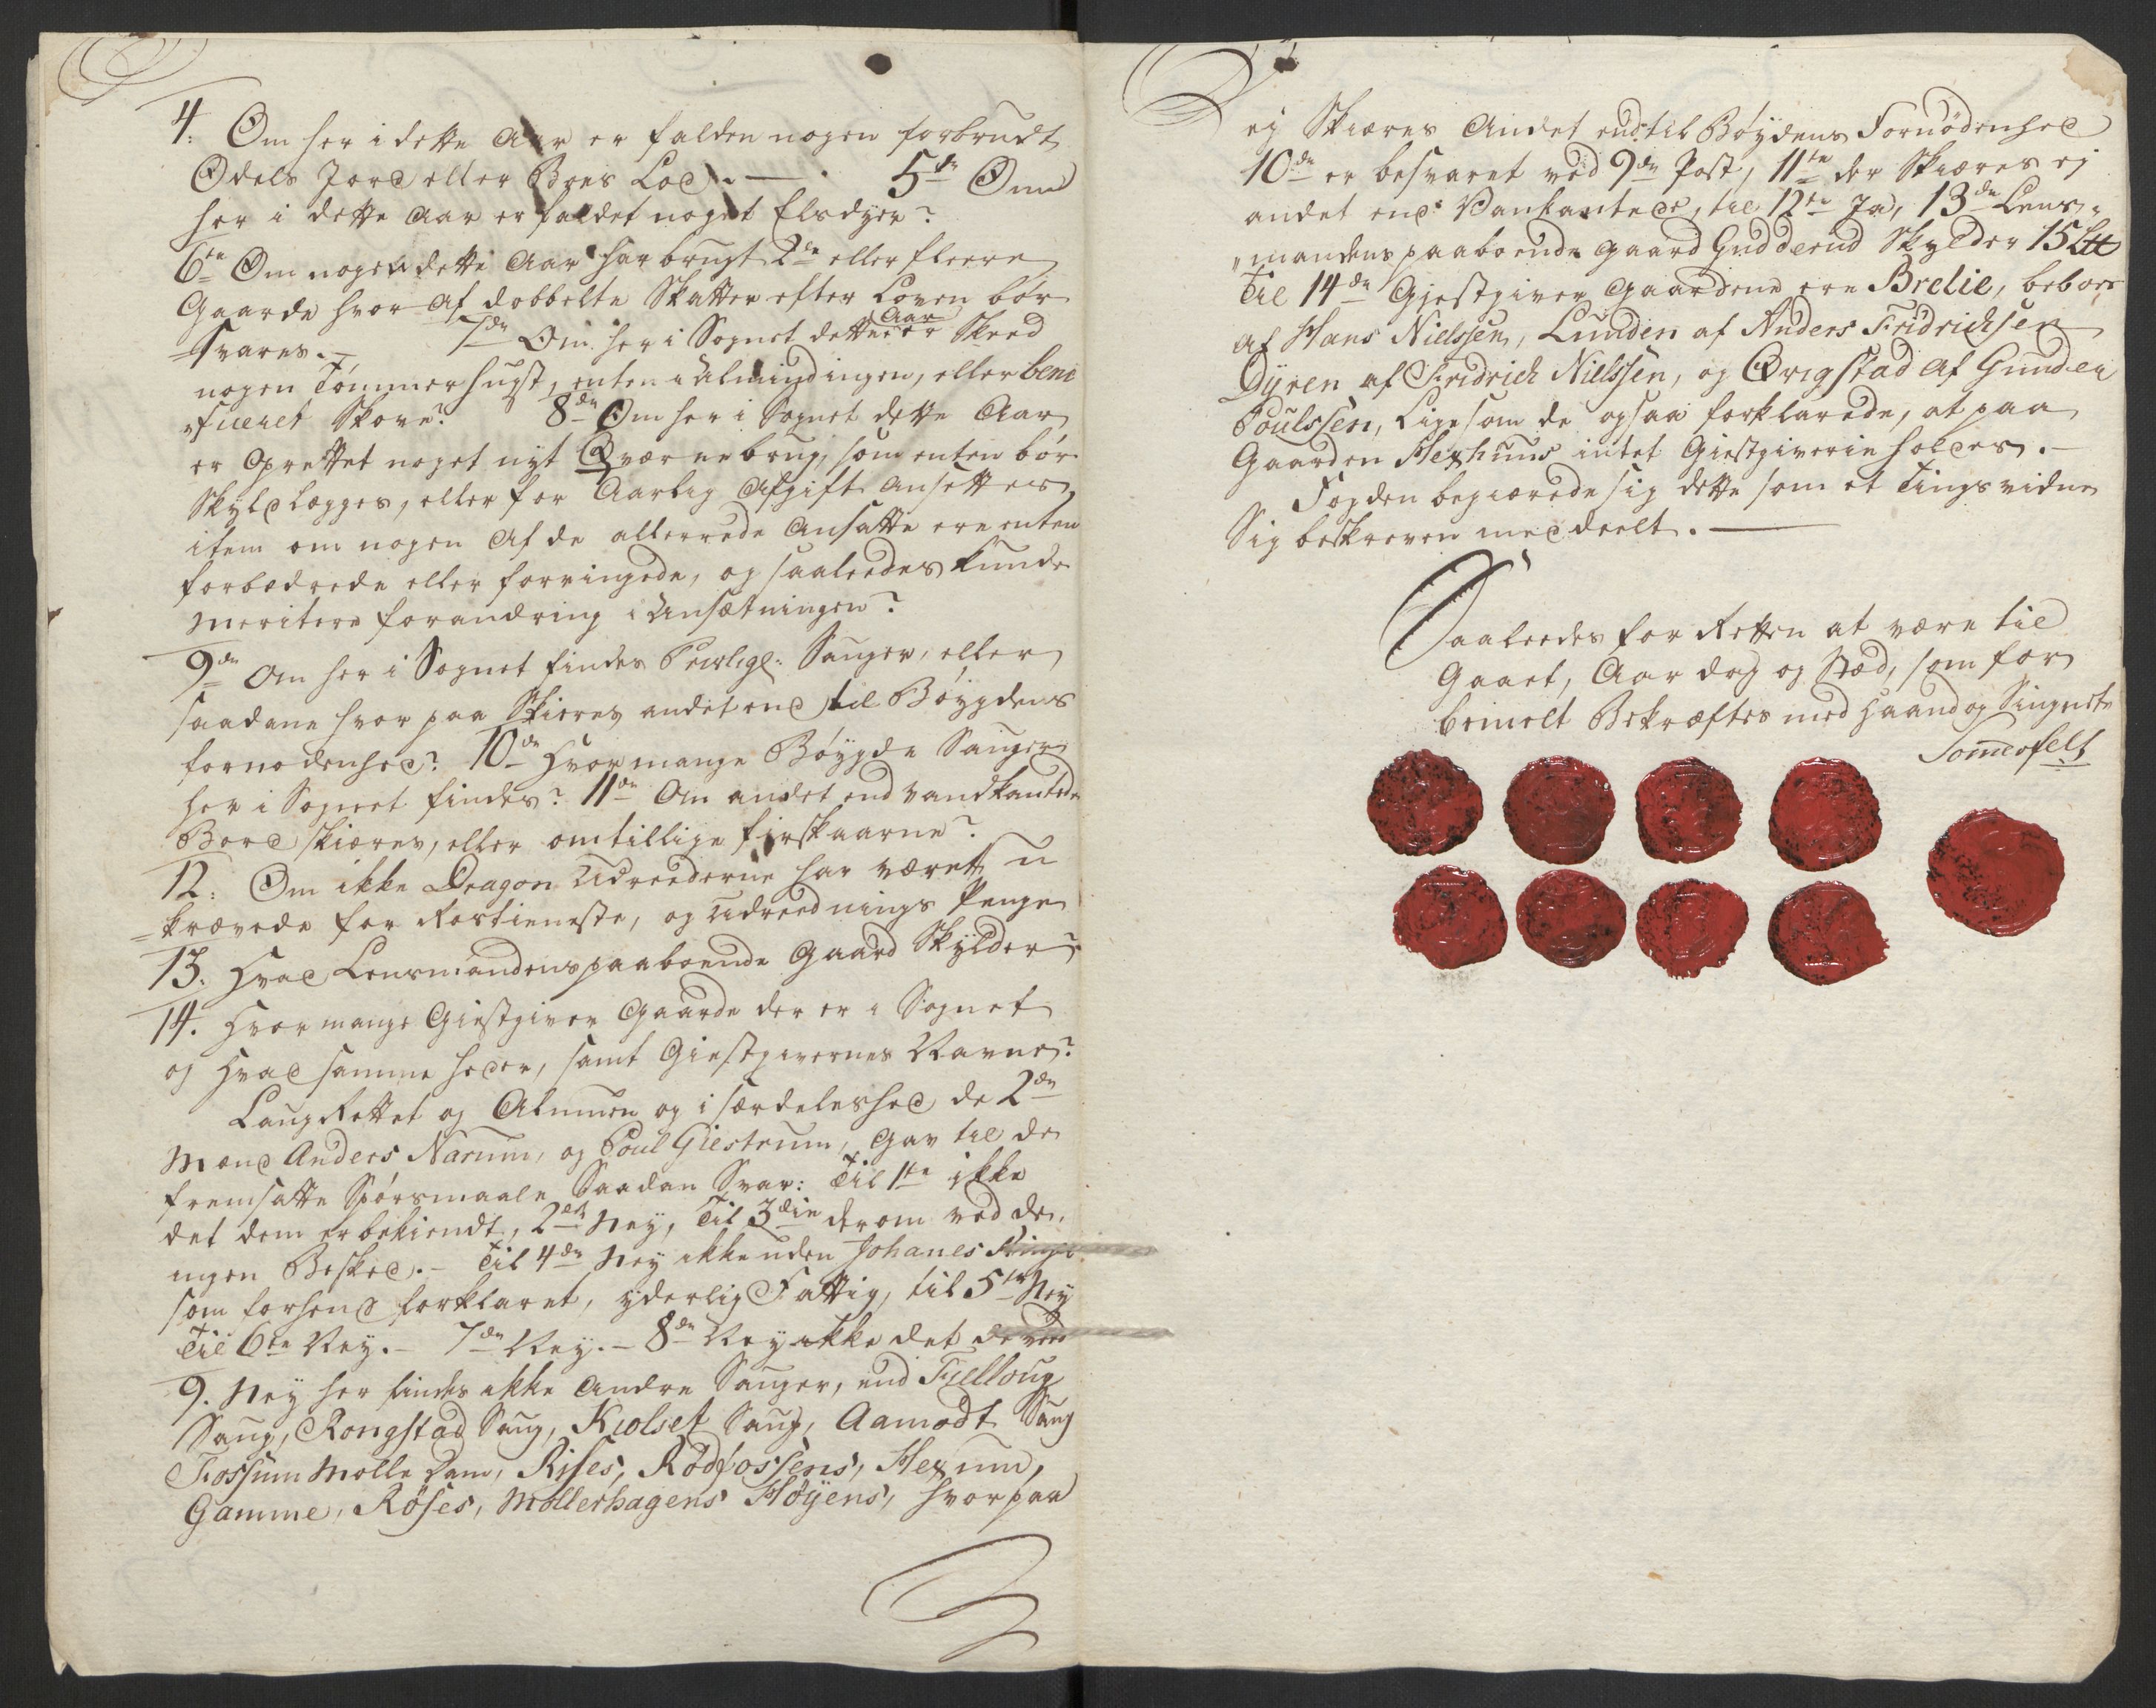 4: Om her i dette Aar er falden nogen forbrudt
Odels Jord eller Boes Lod. — 5te Om
her i dette Aar er faldet noget Elsdyer?
6te Om nogen dette Aar har brugt 2de eller fleere
Gaarde hvor af dobbelte Skatter efter Loven bør
svares. — 7de Om her i Sognet dette Aar er Skeed
nogen Tømmerhugst, enten i Almindingen, eller bene
ficeret Skove? 8de Om her i Sognet dette Aar
er oprettet noget nyt Qværnebrug, som enten bør
Skyldlægges, eller for Aarlig Afgift ansettes,
item om nogen af de allerrede ansatte ere enten
forbædrede eller forringede, og saaleedes kunde
meritere forandring i Ansætningen?
9de Om her i Sognet findes Privlige: Sauger, eller
saadane hvor paa Skieres andet end til Bøygdens
fornødenhed? 10de Hvor mange Bøygde Sauger
her i Sognet findes? 11te Om andet end vandkantede
Bord skiæres, eller om tillige firskaarne?
12: Om ikke Dragon Udreederne harværet u
krævede for Rostieneste, og Udreednings Penge
13. Hvad Lensmandens paaboende Gaard Skylder?
14. Hvor mange Giestgiver Gaarde der er i Sognet
og hvad samme heder, samt Giestgivernes Navne?
LaugRettet og Almuen og i særdeleshed de 2de
Mænd Anders Narum, og Poul Giestrum, gav til de
fremsatte Spørsmaale Saadan Svar: Til 1te ikke
det dem er bekiendt, 2det Ney, Til 3die derom ved de,
ingen Besked. — Til 4de Ney ikke uden Johanes
som forhend forklaret, yderlig Fattig, til 5te Ney
Til 6te Ney. — 7de Ney. — 8de Ney ikke det de veed
9. Ney her findes ikke Andre Sauger, end Fielloug
Saug, Rongstad Saug, Kiolset Saug, Aamodt Saug
Fossum Mølle Dam, Rises, Rødfossens, Hexum,
Gamme, Røses, Møllerhagens Høyens, hvorpaa
ej Skieres Andet end til Bøydens Fornødenhed
10de er besvaret ved 9de Post, 11te der Skiæres ej
andet end Vankantede, til 12te Ja, 13de Lens-
mandens paaboende gaard Gudderud Skylder 15 L℔
Til 14de Gjestgiver Gaardene ere Brelie, beboes
af Hans Nielssen, Lunden af Anders Fridrichsen
Dyren af Fridrich Nielssen, og Ørigstad af Gunder
Poulssen, Ligesom de ogsaa forklarede, at paa
Gaarden Hexhuus intet Giestgiverie holdes. —
Fogden begiærede sig dette som et Tingsvidne
Sig beskreven meddeelt. —
Saaleedes for Retten at være til
Gaaet, Aar dag og Stæd, som for
bemelt Bekræftes med Haand og Signete
Somerfelt